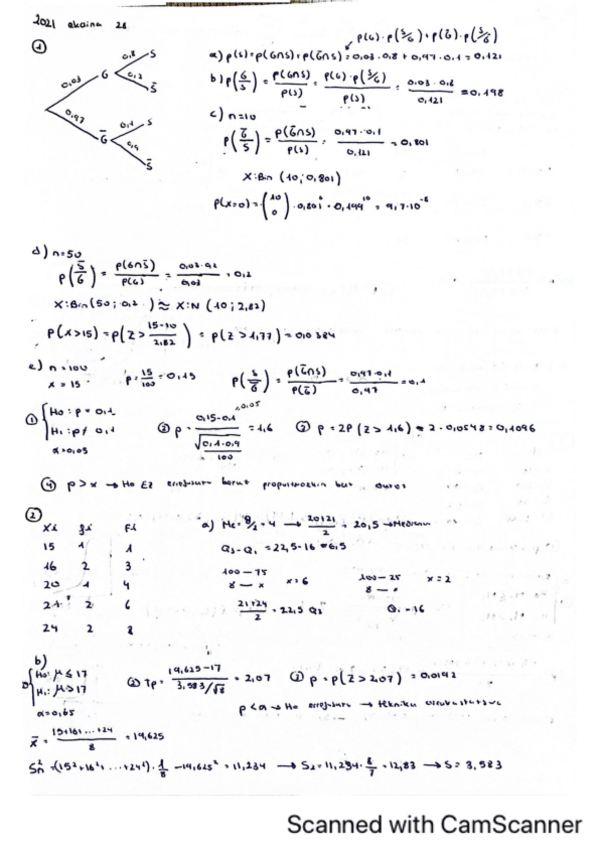 2021 ekaina 28
p(G)·p(S/G)+p(G̅)·p(S/G̅)
①
0,03 G 0,8 S
0,2 S̅
0,97 G̅ 0,1 S
0,9 S̅
a) p(S)=p(G∩S)+p(G̅∩S)=0,03·0,8+0,97·0,1=0,121
b) p(G/S)=p(G∩S)/p(S)=p(G)·p(S/G)/p(S)=0,03·0,8/0,121=0,198
c) n=10
p(G̅/S)=p(G̅∩S)/p(S)=0,97·0,1/0,121=0,801
X:Bin(10;0,801)
p(x=0)=(10 0)·0,801⁰·0,199¹⁰=9,7·10⁻⁸
d) n=50
p(S̅/G)=p(G∩S̅)/p(G)=0,03·0,2/0,03=0,2
X:Bin(50;0,2)≈X:N(10;2,82)
p(x>15)=p(Z>15-10/2,82)=p(Z>1,77)=0,0384
e) n=100
x=15
p=15/100=0,15
p(S/G̅)=p(G̅∩S)/p(G̅)=0,97·0,1/0,97=0,1
① H₀:p=0,1
H₁:p≠0,1
α=0,05
② p=0,15-0,1/√(0,1·0,9/100)=1,6
③ p=2P(Z>1,6)=2·0,0548=0,1096
④ p>α→H₀ Ez
②
Xi fi Fi
15 1 1
16 2 3
20 1 4
21 2 6
24 2 8
a) Me=8/2=4→20+21/2=20,5→Mediana
Q₃-Q₁=22,5-16=6,5
100—75
8—x
x=6
100—25
8—x
x=2
21+24/2=22,5 Q₃
Q₁=16
b)
① H₀:μ≤17
H₁:μ>17
α=0,05
② tp=19,625-17/3,583/√8=2,07
③ p=p(Z>2,07)=0,0192
p<α→H₀ →
x̅=15+16+...+24/8=19,625
Sn²=(15²+16²+...+24²)·1/8-19,625²=11,234→S²=11,234·8/7=12,83→S=3,583
Scanned with CamScanner